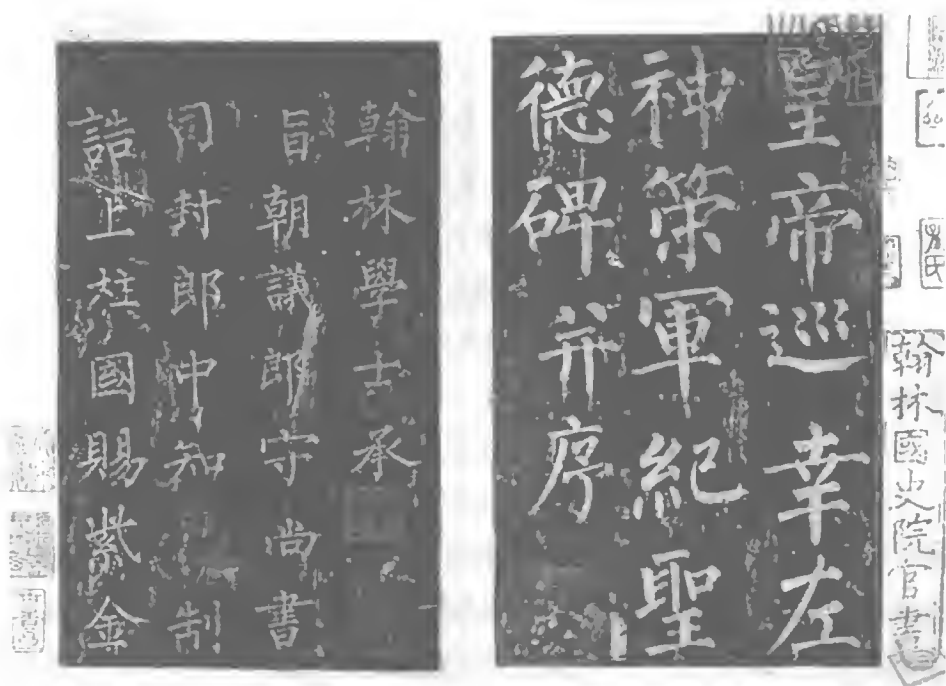 翰林國史院官書
皇帝巡幸左
神策軍紀聖
德碑并序
翰林學士承
旨朝議郎守尚書
司封郎中知制
誥上柱國賜紫金